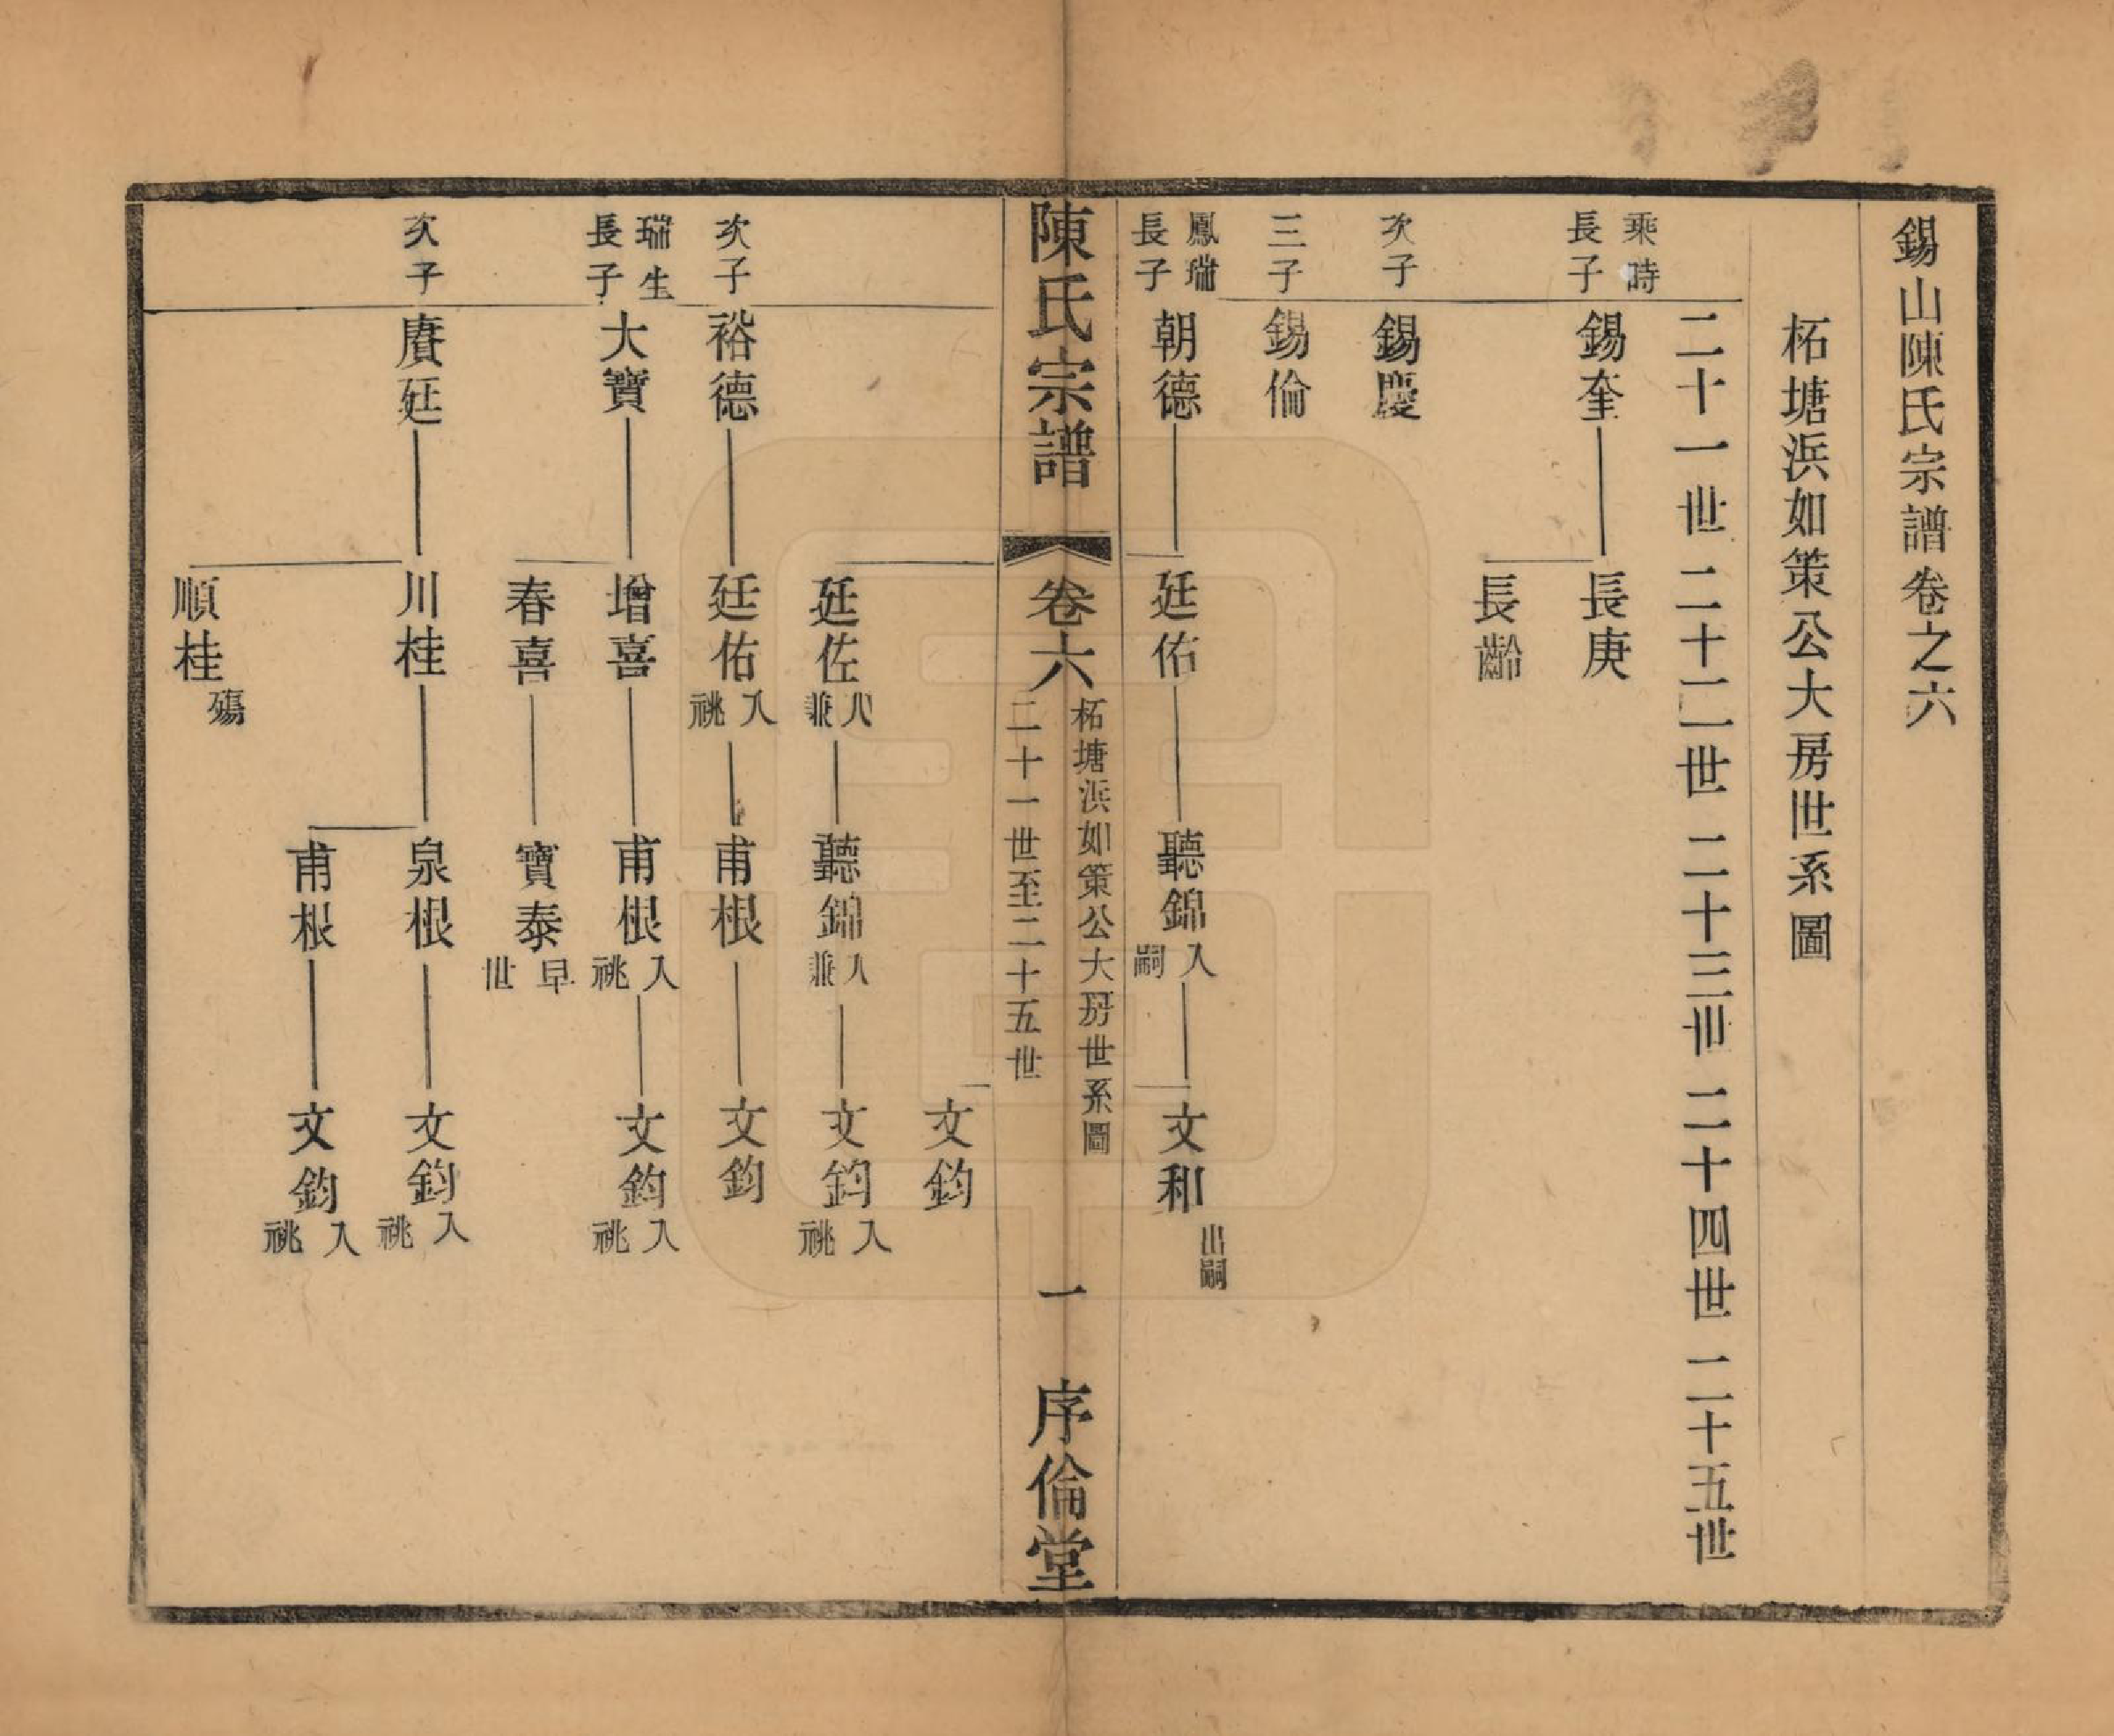 錫山陳氏宗譜卷之六
柘塘浜如策公大房世系圖
二十一世 二十二世 二十三世 二十四世 二十五世
乘時
長子
錫奎
長庚
長齡
次子
錫慶
三子
錫倫
鳳瑞
長子
朝德
廷佑
聽錦
入
嗣
文和
出嗣
陳氏宗譜
卷六
柘塘浜如策公大房世系圖
二十一世至二十五世
一
序倫堂
文鈞
廷佐
入
兼
聽錦
入
兼
文鈞
入
祧
次子
裕德
廷佑
入
祧
甫根
文鈞
瑞生
長子
大寶
增喜
甫根
入
祧
文鈞
入
祧
春喜
寶泰
早
世
次子
賡廷
川桂
泉根
文鈞
入
祧
甫根
文鈞
入
祧
順桂
殤